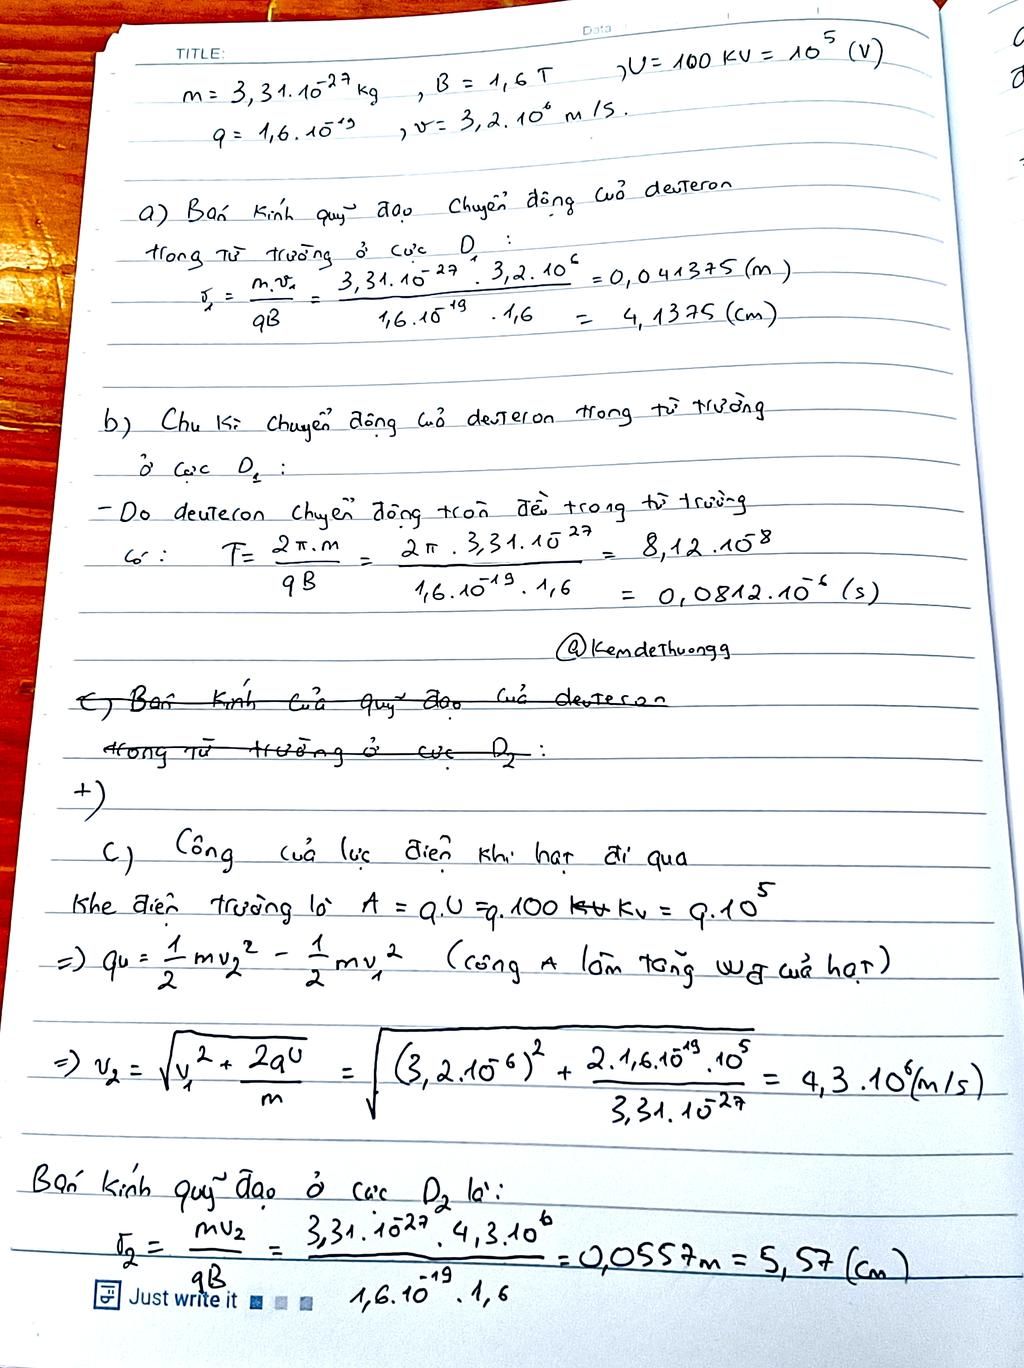 Data
TITLE:
m = 3,31.10⁻²⁷ kg , B = 1,6 T , U = 100 KV = 10⁵ (V)
q = 1,6.10⁻¹⁹ , v = 3,2.10⁶ m/s.
a) Bán kính quỹ đạo chuyển động của deuteron
trong từ trường ở cực D₁ :
r₁ = m.v₁ / qB = 3,31.10⁻²⁷ . 3,2.10⁶ / 1,6.10⁻¹⁹ . 1,6 = 0,041375 (m)
= 4,1375 (cm)
b) Chu kì chuyển động của deuteron trong từ trường
ở cực D₁ :
- Do deuteron chuyển động tròn đều trong từ trường
có : T = 2π.m / qB = 2π . 3,31.10⁻²⁷ / 1,6.10⁻¹⁹ . 1,6 = 8,12.10⁻⁸
= 0,0812.10⁻⁶ (s)
@Kemdethuongg
c) Bán kính của quỹ đạo của deuteron
trong từ trường ở cực D₂ :
+)
c) Công của lực điện khi hạt đi qua
khe điện trường là A = q.U = q.100 kV KV = q.10⁵
=> qU = 1/2 mv₂² - 1/2 mv₁² (công A làm tăng Wđ của hạt)
=> v₂ = √(v₁² + 2qU / m) = √((3,2.10⁻⁶)² + 2.1,6.10⁻¹⁹.10⁵ / 3,31.10⁻²⁷) = 4,3.10⁶ (m/s)
Bán kính quỹ đạo ở cực D₂ là :
r₂ = mv₂ / qB = 3,31.10⁻²⁷ . 4,3.10⁶ / 1,6.10⁻¹⁹ . 1,6 = 0,0557m = 5,57 (cm)
Just write it